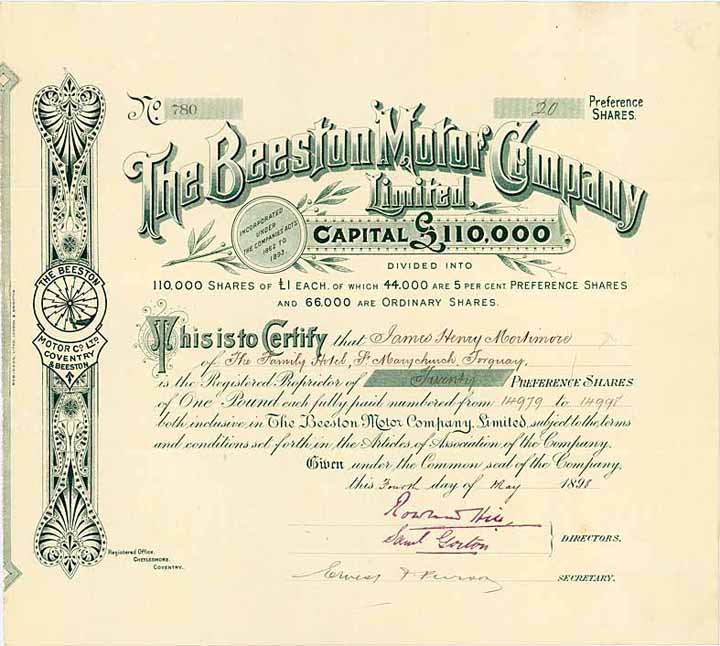 No. 780
20 Preference
SHARES.
The Beeston Motor Company
Limited.
INCORPORATED
UNDER
THE COMPANIES ACTS
1862 TO
1893.
CAPITAL £110,000
DIVIDED INTO
110,000 SHARES OF £1 EACH, OF WHICH 44,000 ARE 5 PER CENT PREFERENCE SHARES
AND 66,000 ARE ORDINARY SHARES.
This is to Certify that James Henry Mortimore
of The Family Hotel, St Marychurch, Torquay,
is the Registered Proprietor of Twenty PREFERENCE SHARES
of One Pound each fully paid numbered from 14979 to 14998
both inclusive in The Beeston Motor Company, Limited, subject to the terms
and conditions set forth in the Articles of Association of the Company.
Given under the Common seal of the Company,
this Fourth day of May 1898
Rowland Hill
Saml Gorton
DIRECTORS.
Ernest
SECRETARY.
Registered Office,
CHEYLESMORE,
COVENTRY.
THE BEESTON
MOTOR CO. LTD
COVENTRY
& BEESTON